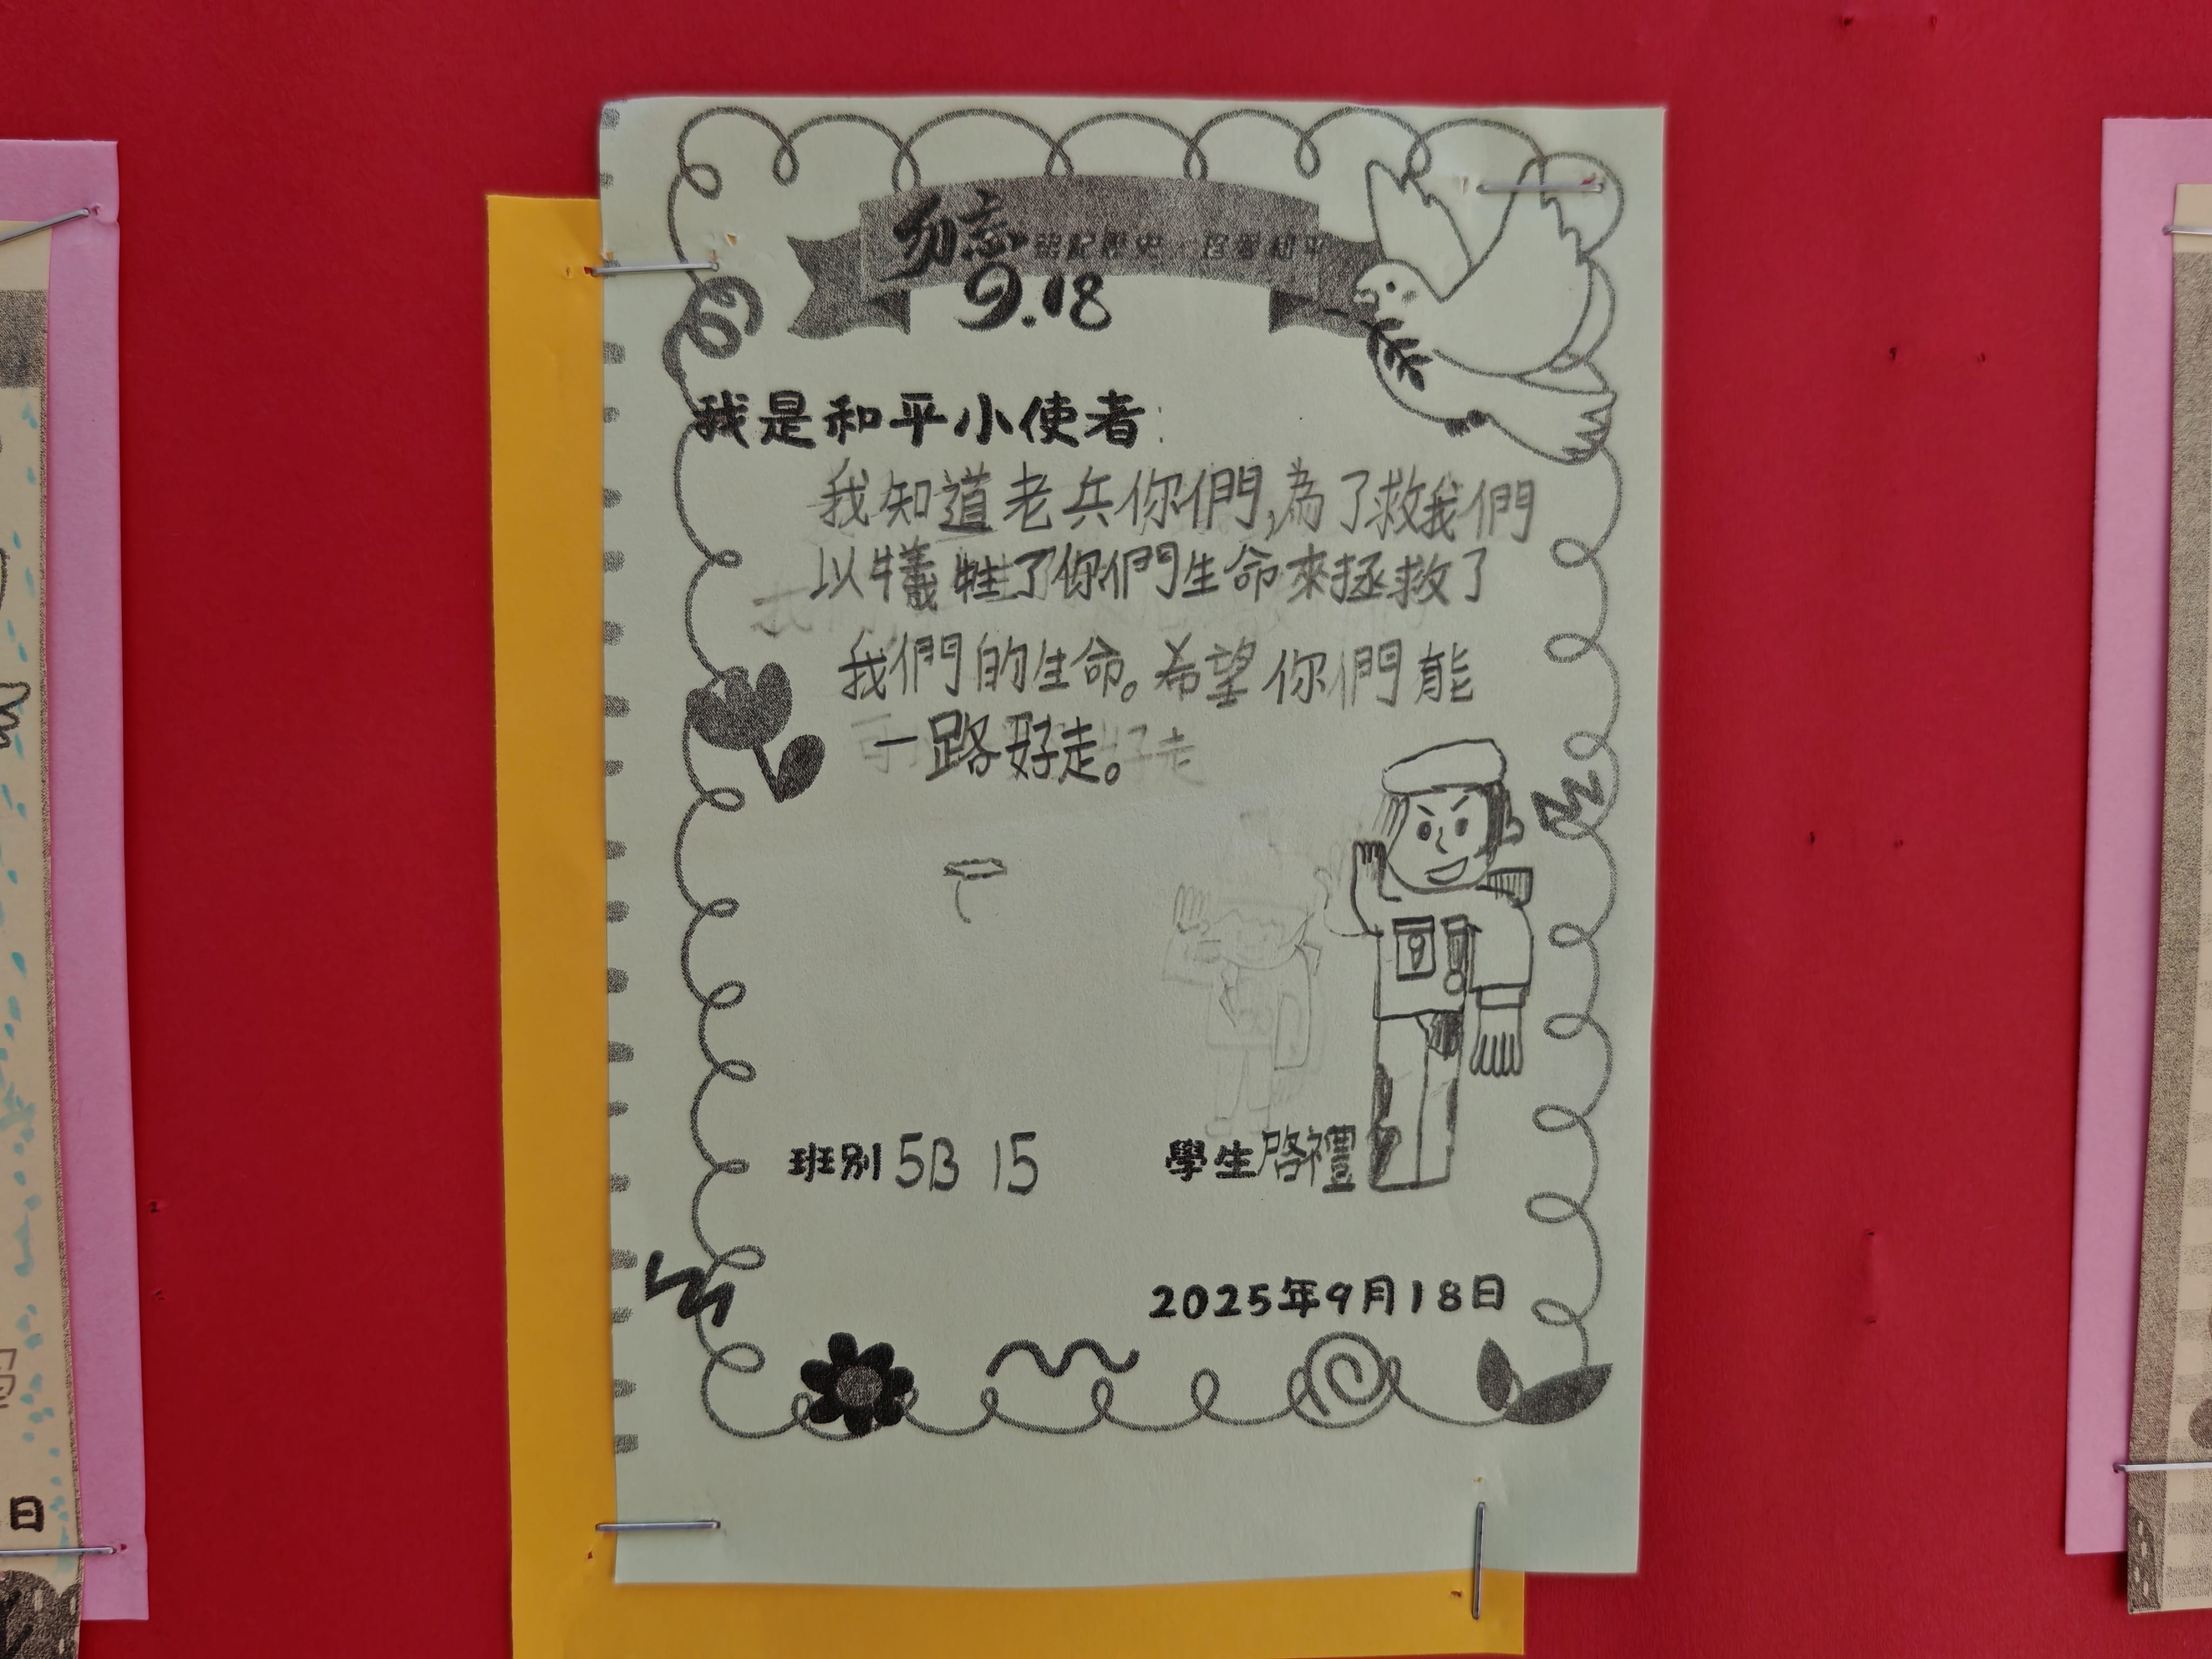 勿忘 銘記歷史 珍愛和平
9.18
我是和平小使者:
我知道老兵你們,為了救我們
以犧牲了你們生命來拯救了
我們的生命。希望你們能
一路好走。
班別 5B 15 學生 啓禮
2025年9月18日
日